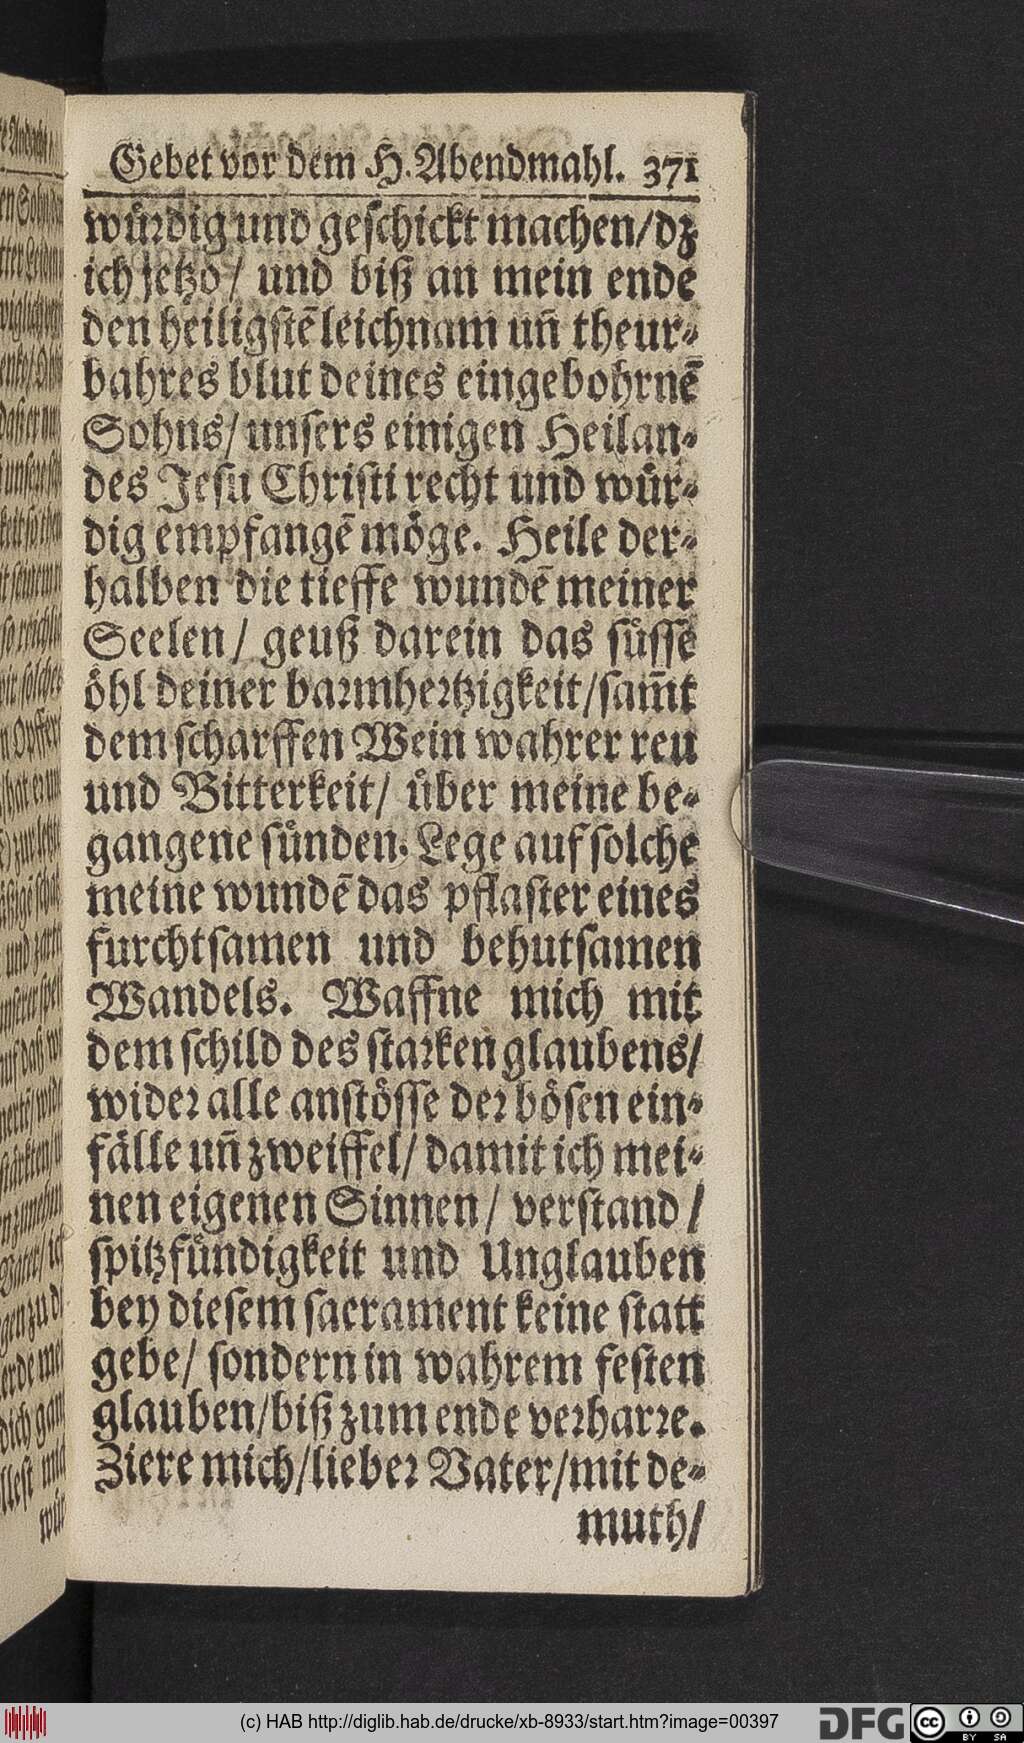 Gebet vor dem H. Abendmahl. 371
wuͤrdig und geschickt machen/dz
ich jetzo/ und biß an mein ende
den heiligstē leichnam uñ theur-
bahres blut deines eingebohrnē
Sohns/ unsers einigen Heilan-
des Jesu Christi recht und wuͤr-
dig empfangē moͤge. Heile der-
halben die tieffe wundē meiner
Seelen/ geuß darein das suͤsse
oͤhl deiner barmhertzigkeit/sam̃t
dem scharffen Wein wahrer reu
und Bitterkeit/ uͤber meine be-
gangene suͤnden. Lege auf solche
meine wundē das pflaster eines
furchtsamen und behutsamen
Wandels. Waffne mich mit
dem schild des starken glaubens/
wider alle anstoͤsse der boͤsen ein-
faͤlle uñ zweiffel/ damit ich mei-
nen eigenen Sinnen/ verstand/
spitzfuͤndigkeit und Unglauben
bey diesem sacrament keine statt
gebe/ sondern in wahrem festen
glauben/biß zum ende verharre.
Ziere mich/lieber Vater/mit de-
muth/
(c) HAB http://diglib.hab.de/drucke/xb-8933/start.htm?image=00397
DFG
cc BY SA